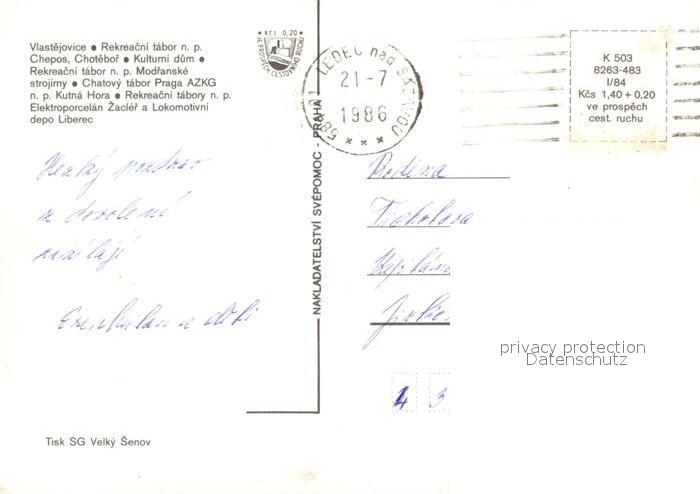 Vlastějovice ● Rekreační tábor n. p.
Chepos, Chotěboř ● Kulturní dům ●
Rekreační tábor n. p. Modřanské
strojírny ● Chatový tábor Praga AZKG
n. p. Kutná Hora ● Rekreační tábory n. p.
Elektroporcelán Žacléř a Lokomotivní
depo Liberec
Kčs 0,20
VE PROSPĚCH CESTOVNÍHO RUCHU
LEDEČ nad SÁZAVOU
21-7
1986
K 503
8263-483
I/84
Kčs 1,40 + 0,20
ve prospěch
cest. ruchu
NAKLADATELSTVÍ SVÉPOMOC - PRAHA 1
Hezký pozdrav
z dovolené
zasílají
Eva, Milan a děti
Rodina
4 3
privacy protection
Datenschutz
Tisk SG Velký Šenov